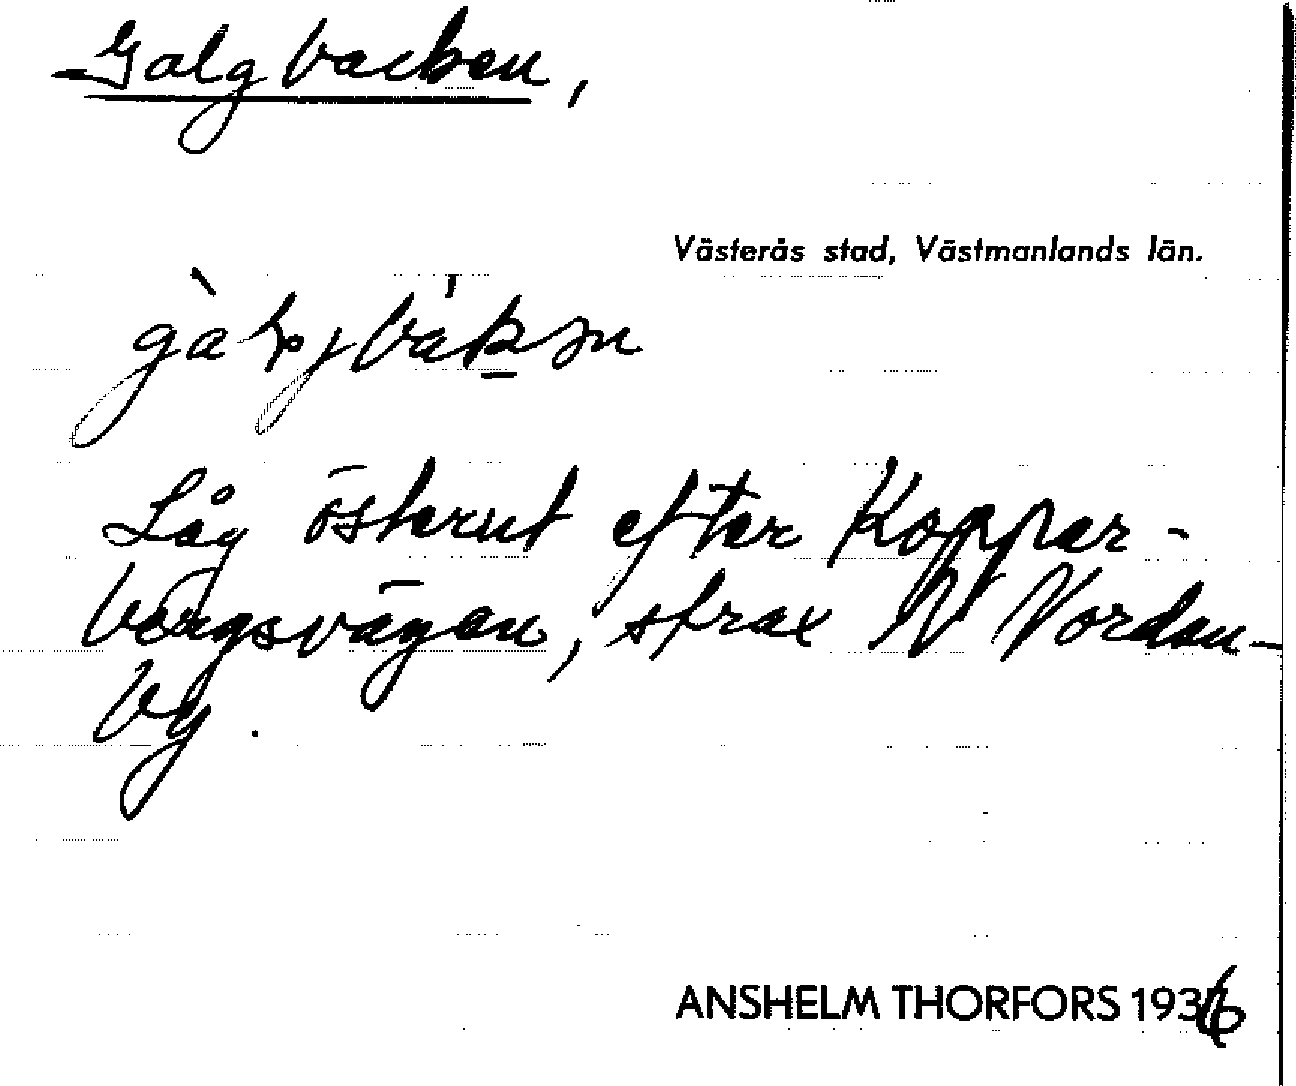 Galgbacken,
Västerås stad, Västmanlands län.
Låg österut efter Koppar-
bergsvägen, strax N Nordan-
by.
ANSHELM THORFORS 1936